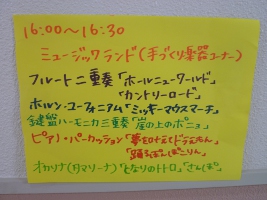 16:00～16:30
ミュージックランド(手づくり楽器コーナー)
フルート二重奏「ホールニューワールド」
「カントリーロード」
ホルン・ユーフォニアム「ミッキーマウスマーチ」
鍵盤ハーモニカ三重奏「崖の上のポニョ」
ピアノ・パーカッション「夢をかなえてドラえもん」
「踊るぽんぽこりん」
オカリナ(カマリーナ)「となりのトトロ」「さんぽ」